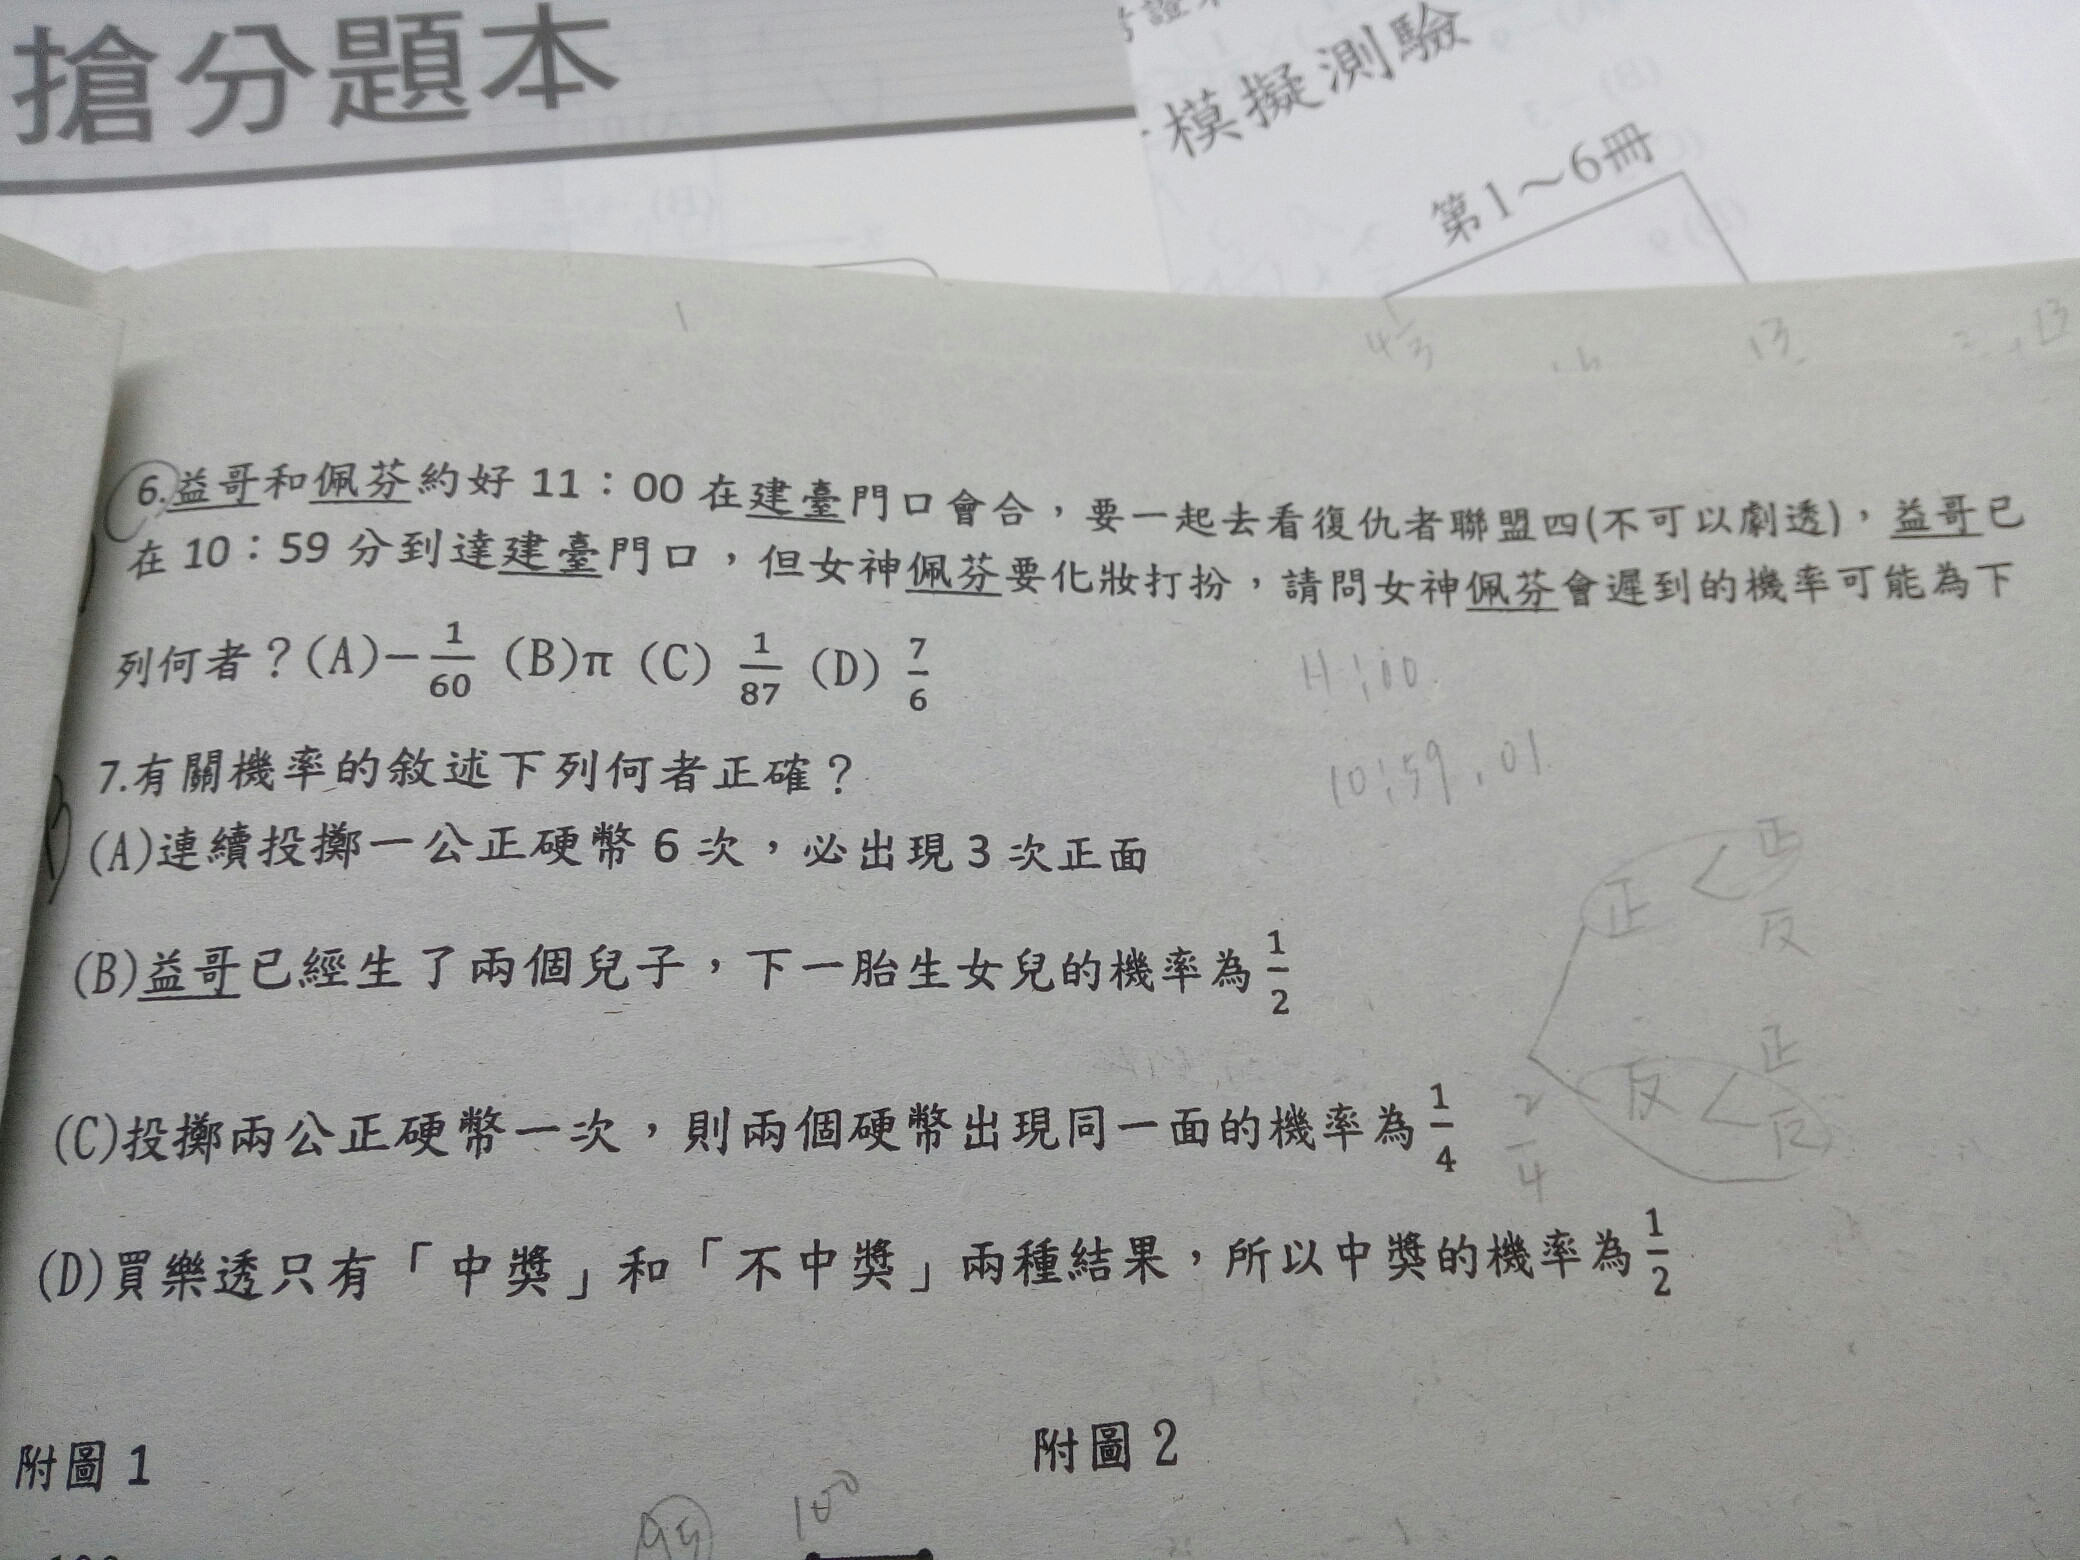 搶分題本
模擬測驗
第1～6冊
6.益哥和佩芬約好 11：00 在建臺門口會合，要一起去看復仇者聯盟四(不可以劇透)，益哥已
在 10：59 分到達建臺門口，但女神佩芬要化妝打扮，請問女神佩芬會遲到的機率可能為下
列何者？(A)−1/60 (B)π (C) 1/87 (D) 7/6
11:00
10:59.01
7.有關機率的敘述下列何者正確？
(A)連續投擲一公正硬幣 6 次，必出現 3 次正面
(B)益哥已經生了兩個兒子，下一胎生女兒的機率為1/2
正 正
反
(C)投擲兩公正硬幣一次，則兩個硬幣出現同一面的機率為1/4
2/4
反 正
反
(D)買樂透只有「中獎」和「不中獎」兩種結果，所以中獎的機率為1/2
附圖 1
附圖 2
95
100